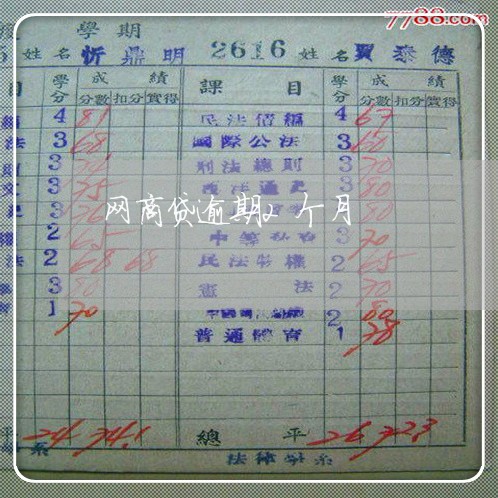 7788.com
學期
姓名 忻鼎明 2616 姓名 賈泰德
目 學分 成績 課目 學分 成績
分數 扣分 實得 分數 扣分 實得
4 81 民法債編 4 67
法 3 68 國際公法 3 60
3 刑法總則 3 70
文 3 75 3 80
3 80
网商贷逾期2个月
權 2 65 3 70
法 2 68 68 民法物權 2 65
3 80 憲法 2 70
1 70 2 80
普通體育 1 78
平 24 74.1 總平 26 72.3
系 法律學系